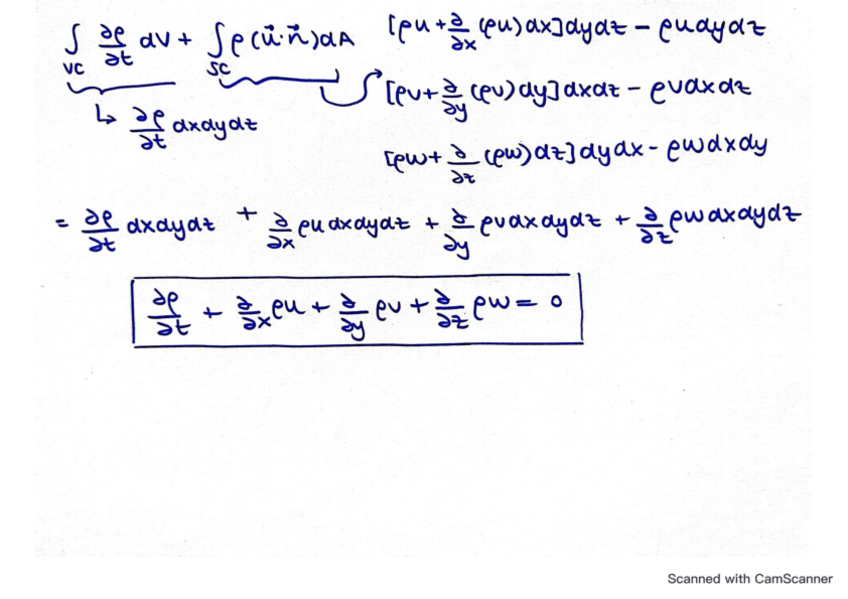 ∫_VC ∂ρ/∂t dV + ∫_SC ρ(u⃗·n⃗)dA
↳ ∂ρ/∂t dxdydz
[ρu + ∂/∂x (ρu)dx]dydz − ρudydz
[ρv + ∂/∂y (ρv)dy]dxdz − ρvdxdz
[ρw + ∂/∂z (ρw)dz]dydx − ρwdxdy
= ∂ρ/∂t dxdydz + ∂/∂x ρu dxdydz + ∂/∂y ρv dxdydz + ∂/∂z ρw dxdydz
∂ρ/∂t + ∂/∂x ρu + ∂/∂y ρv + ∂/∂z ρw = 0
Scanned with CamScanner